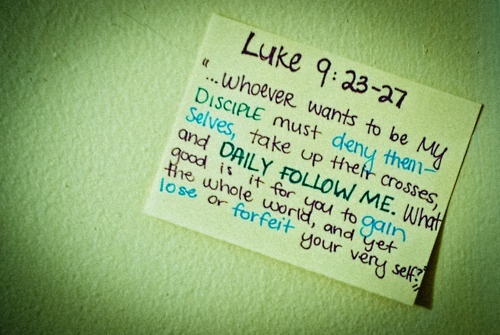 Luke 9:23-27
"...Whoever wants to be My
DISCIPLE must deny them-
selves, take up their crosses,
and DAILY FOLLOW ME. What
good is it for you to gain
the whole world, and yet
lose or forfeit your very self?"